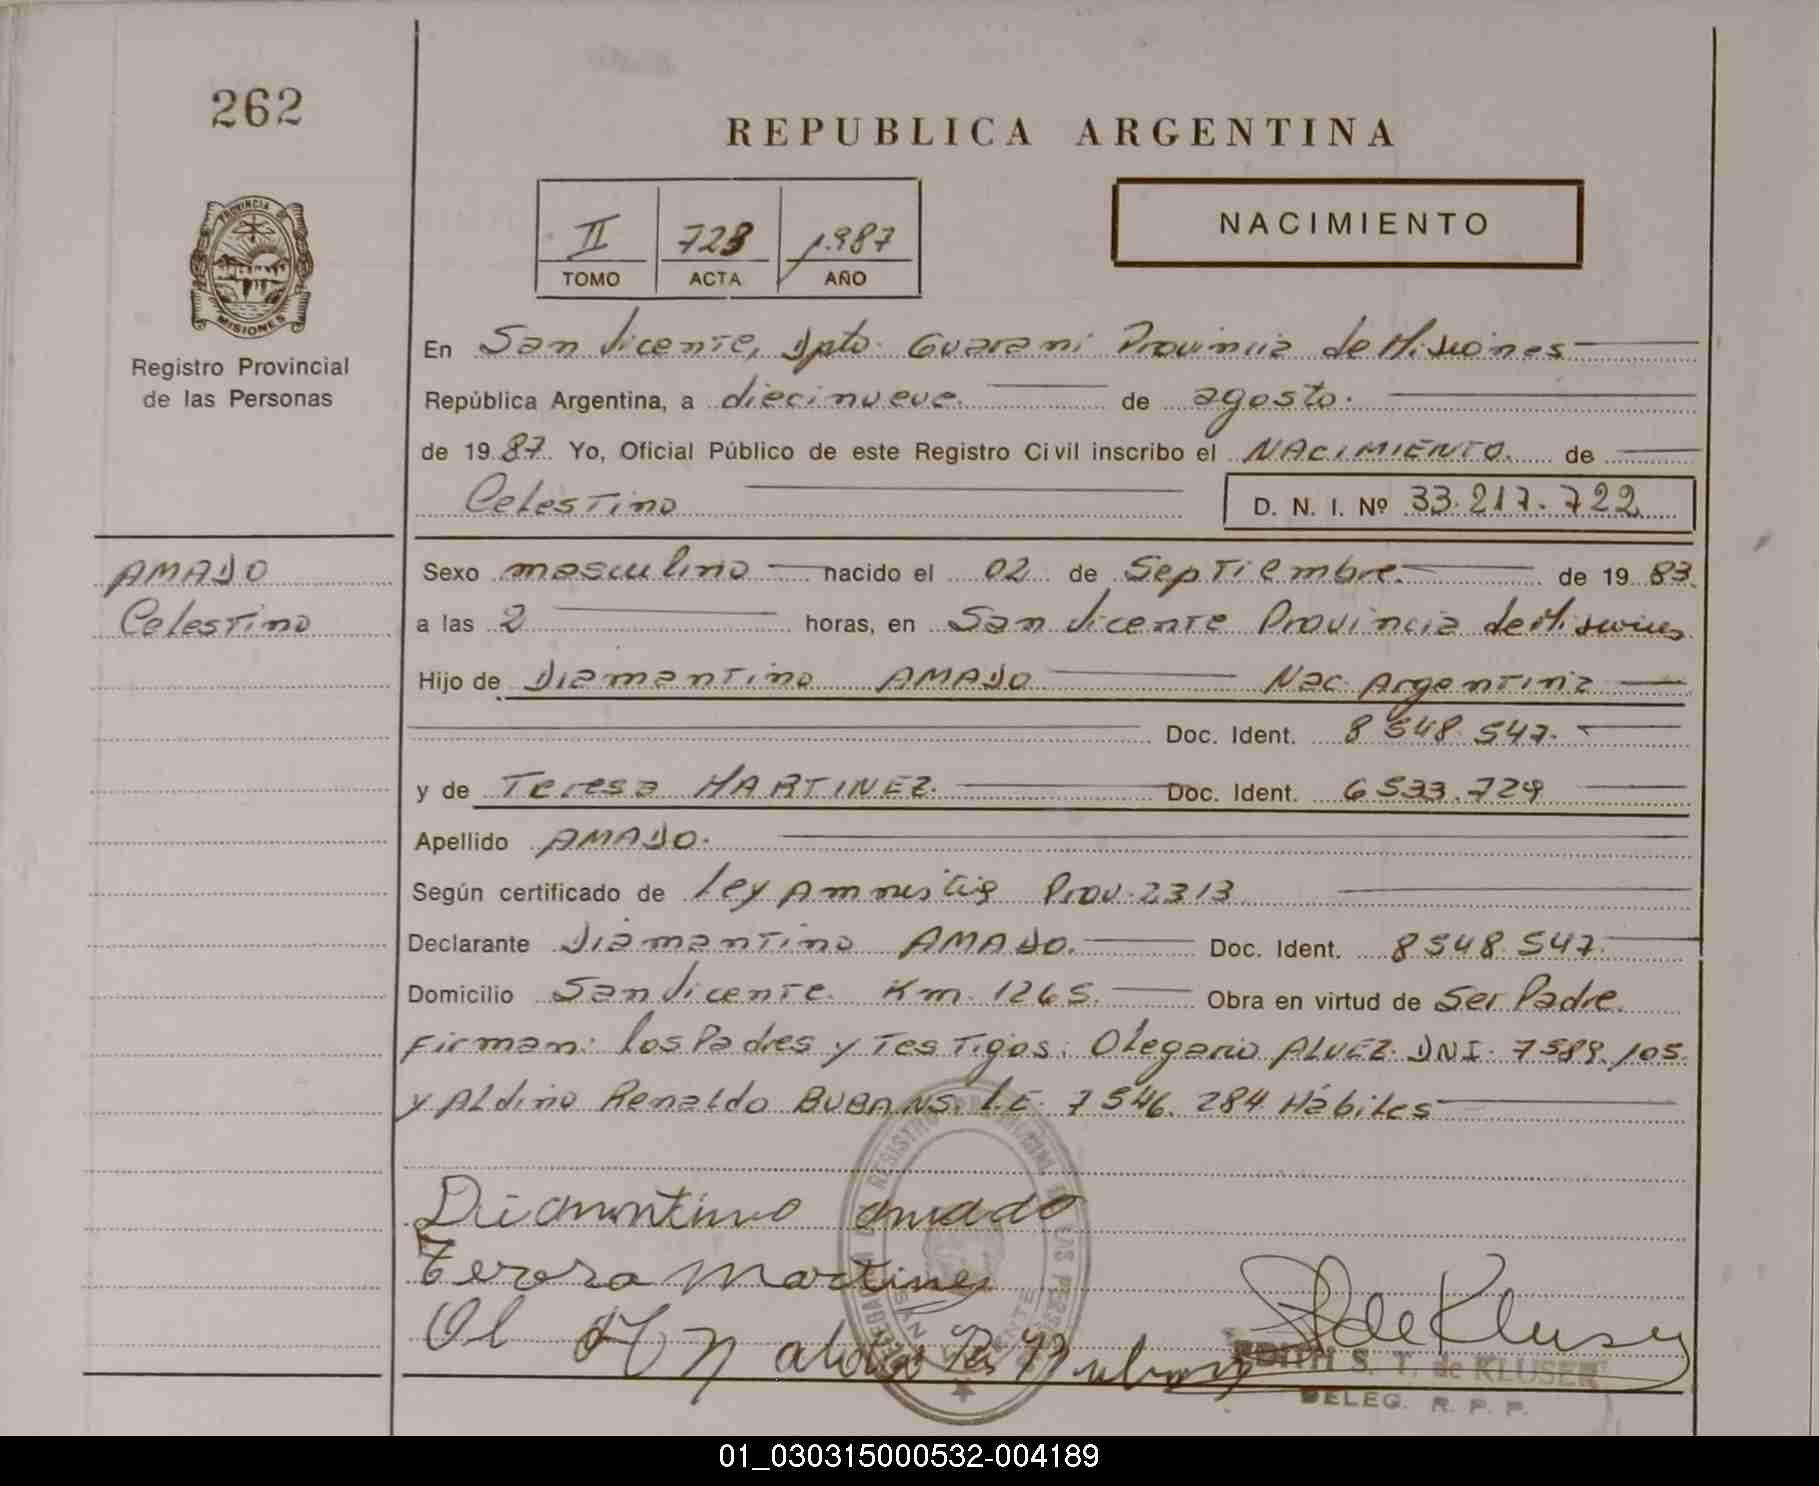 262
REPUBLICA ARGENTINA
PROVINCIA DE
MISIONES
Registro Provincial
de las Personas
II 728 1.987
TOMO ACTA AÑO
NACIMIENTO
En San Vicente, Dpto. Guarani Provincia de Misiones
República Argentina, a diecinueve. de agosto.
de 19 87. Yo, Oficial Público de este Registro Civil inscribo el NACIMIENTO. de
Celestino D. N. I. Nº 33.217.722
AMADO
Celestino
Sexo masculino nacido el 02 de Septiembre. de 19 83.
a las 2 horas, en San Vicente Provincia de Misiones
Hijo de Diamantino AMADO Nac. Argentina
Doc. Ident. 8 548 547.
y de Teresa MARTINEZ. Doc. Ident. 6 533.729
Apellido AMADO.
Según certificado de Ley Amnistia Prov. 2313
Declarante Diamantino AMADO. Doc. Ident. 8548 547.
Domicilio San Vicente Km. 1265. Obra en virtud de Ser Padre.
Firman: los Padres y Testigos: Olegario ALVEZ. DNI. 7589.105.
y Aldino Renaldo BUBANS. L.E. 7546.284 Hábiles
Diamantino amado
Teresa Martines
Ol
de Kluser
EDITH S. T. de KLUSER
DELEG. R. P. P.
01_030315000532-004189